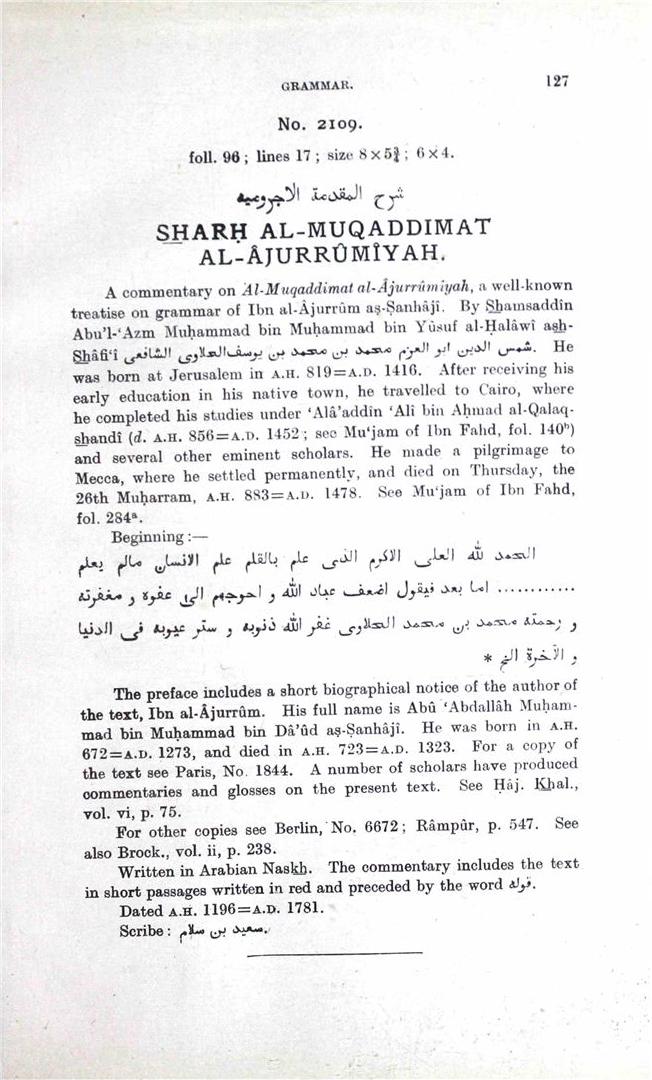 GRAMMAR. 127
No. 2109.
foll. 96; lines 17; size 8 × 5¾; 6 × 4.
شرح المقدمة الاجروميه
SHARḤ AL-MUQADDIMAT
AL-ÂJURRÛMÎYAH.
A commentary on Al-Muqaddimat al-Âjurrûmiyah, a well-known
treatise on grammar of Ibn al-Âjurrûm aṣ-Ṣanhâjî. By Shamsaddîn
Abu'l-‘Azm Muḥammad bin Muḥammad bin Yûsuf al-Ḥalâwî ash-
Shâfi‘î شمس الدين ابو العزم محمد بن محمد بن يوسف الحلاوى الشافعى. He
was born at Jerusalem in A.H. 819=A.D. 1416. After receiving his
early education in his native town, he travelled to Cairo, where
he completed his studies under ‘Alâ’addîn ‘Alî bin Aḥmad al-Qalaq-
shandî (d. A.H. 856=A.D. 1452; see Mu‘jam of Ibn Fahd, fol. 140ᵇ)
and several other eminent scholars. He made a pilgrimage to
Mecca, where he settled permanently, and died on Thursday, the
26th Muḥarram, A.H. 883=A.D. 1478. See Mu‘jam of Ibn Fahd,
fol. 284ᵃ.
Beginning:—
الحمد لله العلى الاكرم الذى علم بالقلم علم الانسان مالم يعلم
............ اما بعد فيقول اضعف عباد الله و احوجهم الى عفوه و مغفرته
و رحمته محمد بن محمد الحلاوى غفر الله ذنوبه و ستر عيوبه فى الدنيا
و الآخرة الخ *
The preface includes a short biographical notice of the author of
the text, Ibn al-Âjurrûm. His full name is Abû ‘Abdallâh Muḥam-
mad bin Muḥammad bin Dâ’ûd aṣ-Ṣanhâjî. He was born in A.H.
672=A.D. 1273, and died in A.H. 723=A.D. 1323. For a copy of
the text see Paris, No. 1844. A number of scholars have produced
commentaries and glosses on the present text. See Ḥâj. Khal.,
vol. vi, p. 75.
For other copies see Berlin, No. 6672; Râmpûr, p. 547. See
also Brock., vol. ii, p. 238.
Written in Arabian Naskh. The commentary includes the text
in short passages written in red and preceded by the word قوله.
Dated A.H. 1196=A.D. 1781.
Scribe: سعيد بن سلام.